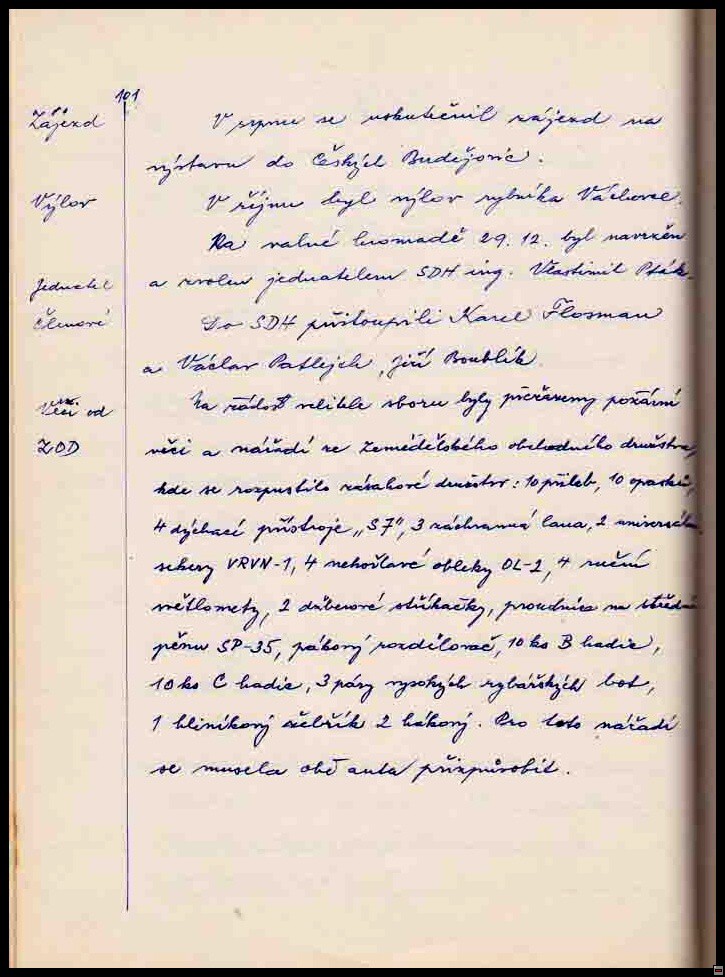 101
Zájezd
V srpnu se uskutečnil zájezd na
výstavu do Českých Budějovic.
Výlov
V říjnu byl výlov rybníka Váchovec.
Na valné hromadě 29. 12. byl navržen
Jednatel
a zvolen jednatelem SDH ing. Vlastimil Pták.
Členové
Do SDH přistoupili Karel Flosman
a Václav Patlejch, Jiří Boublík.
Věci od
Na žádost velitele sboru byly převzaty požární
ZOD
věci a nářadí ze Zemědělského obchodního družstva,
kde se rozpustilo zásahové družstvo: 10 přileb, 10 opasků,
4 dýchací přístroje „S7", 3 záchranná lana, 2 universální
sekery VRVN-1, 4 nehořlavé obleky OL-2, 4 ruční
světlomety, 2 džberové stříkačky, proudnice na střední
pěnu SP-35, pákový rozdělovač, 10 ks B hadic,
10 ks C hadic, 3 páry vysokých rybářských bot,
1 hliníkový žebřík 2 hákový. Pro toto nářadí
se musela obě auta přizpůsobit.